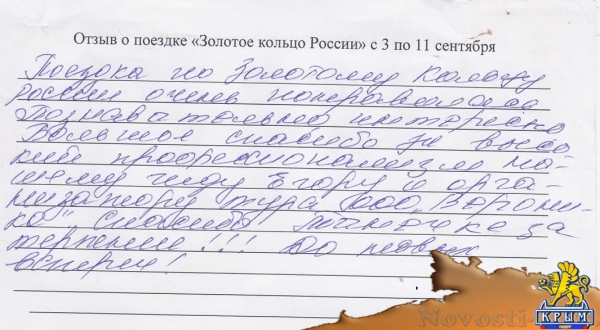 Отзыв о поездке «Золотое кольцо России» с 3 по 11 сентября
Поездка по Золотому Кольцу
россии очень понравилась
Познавательно интересно
Большое спасибо за высо-
кий профессионализм на-
шему гиду Егору и орга-
низатору тура ООО „Верони-
ка" спасибо за
терпение!!! До новых
встреч!
Novosti-
КРЫМ